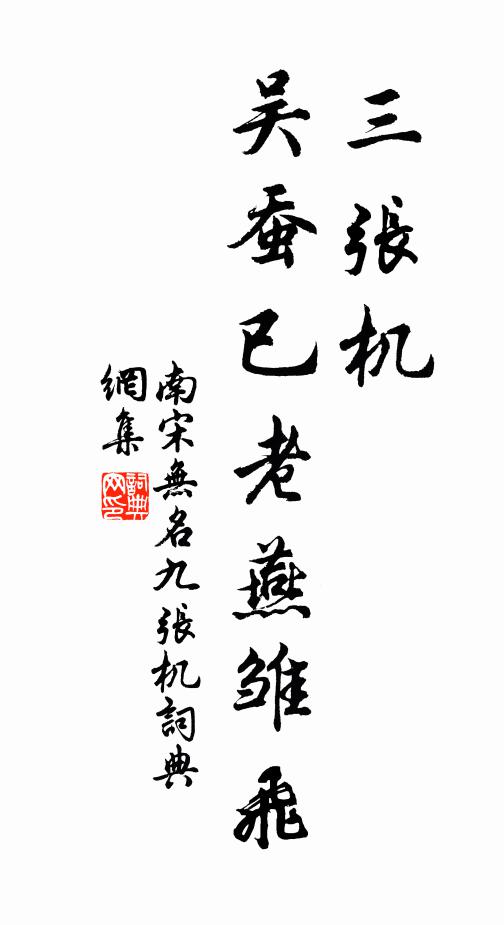 三張机
吴蚕已老燕雏飛
南宋無名九張机詞典
網集
詞典
网印